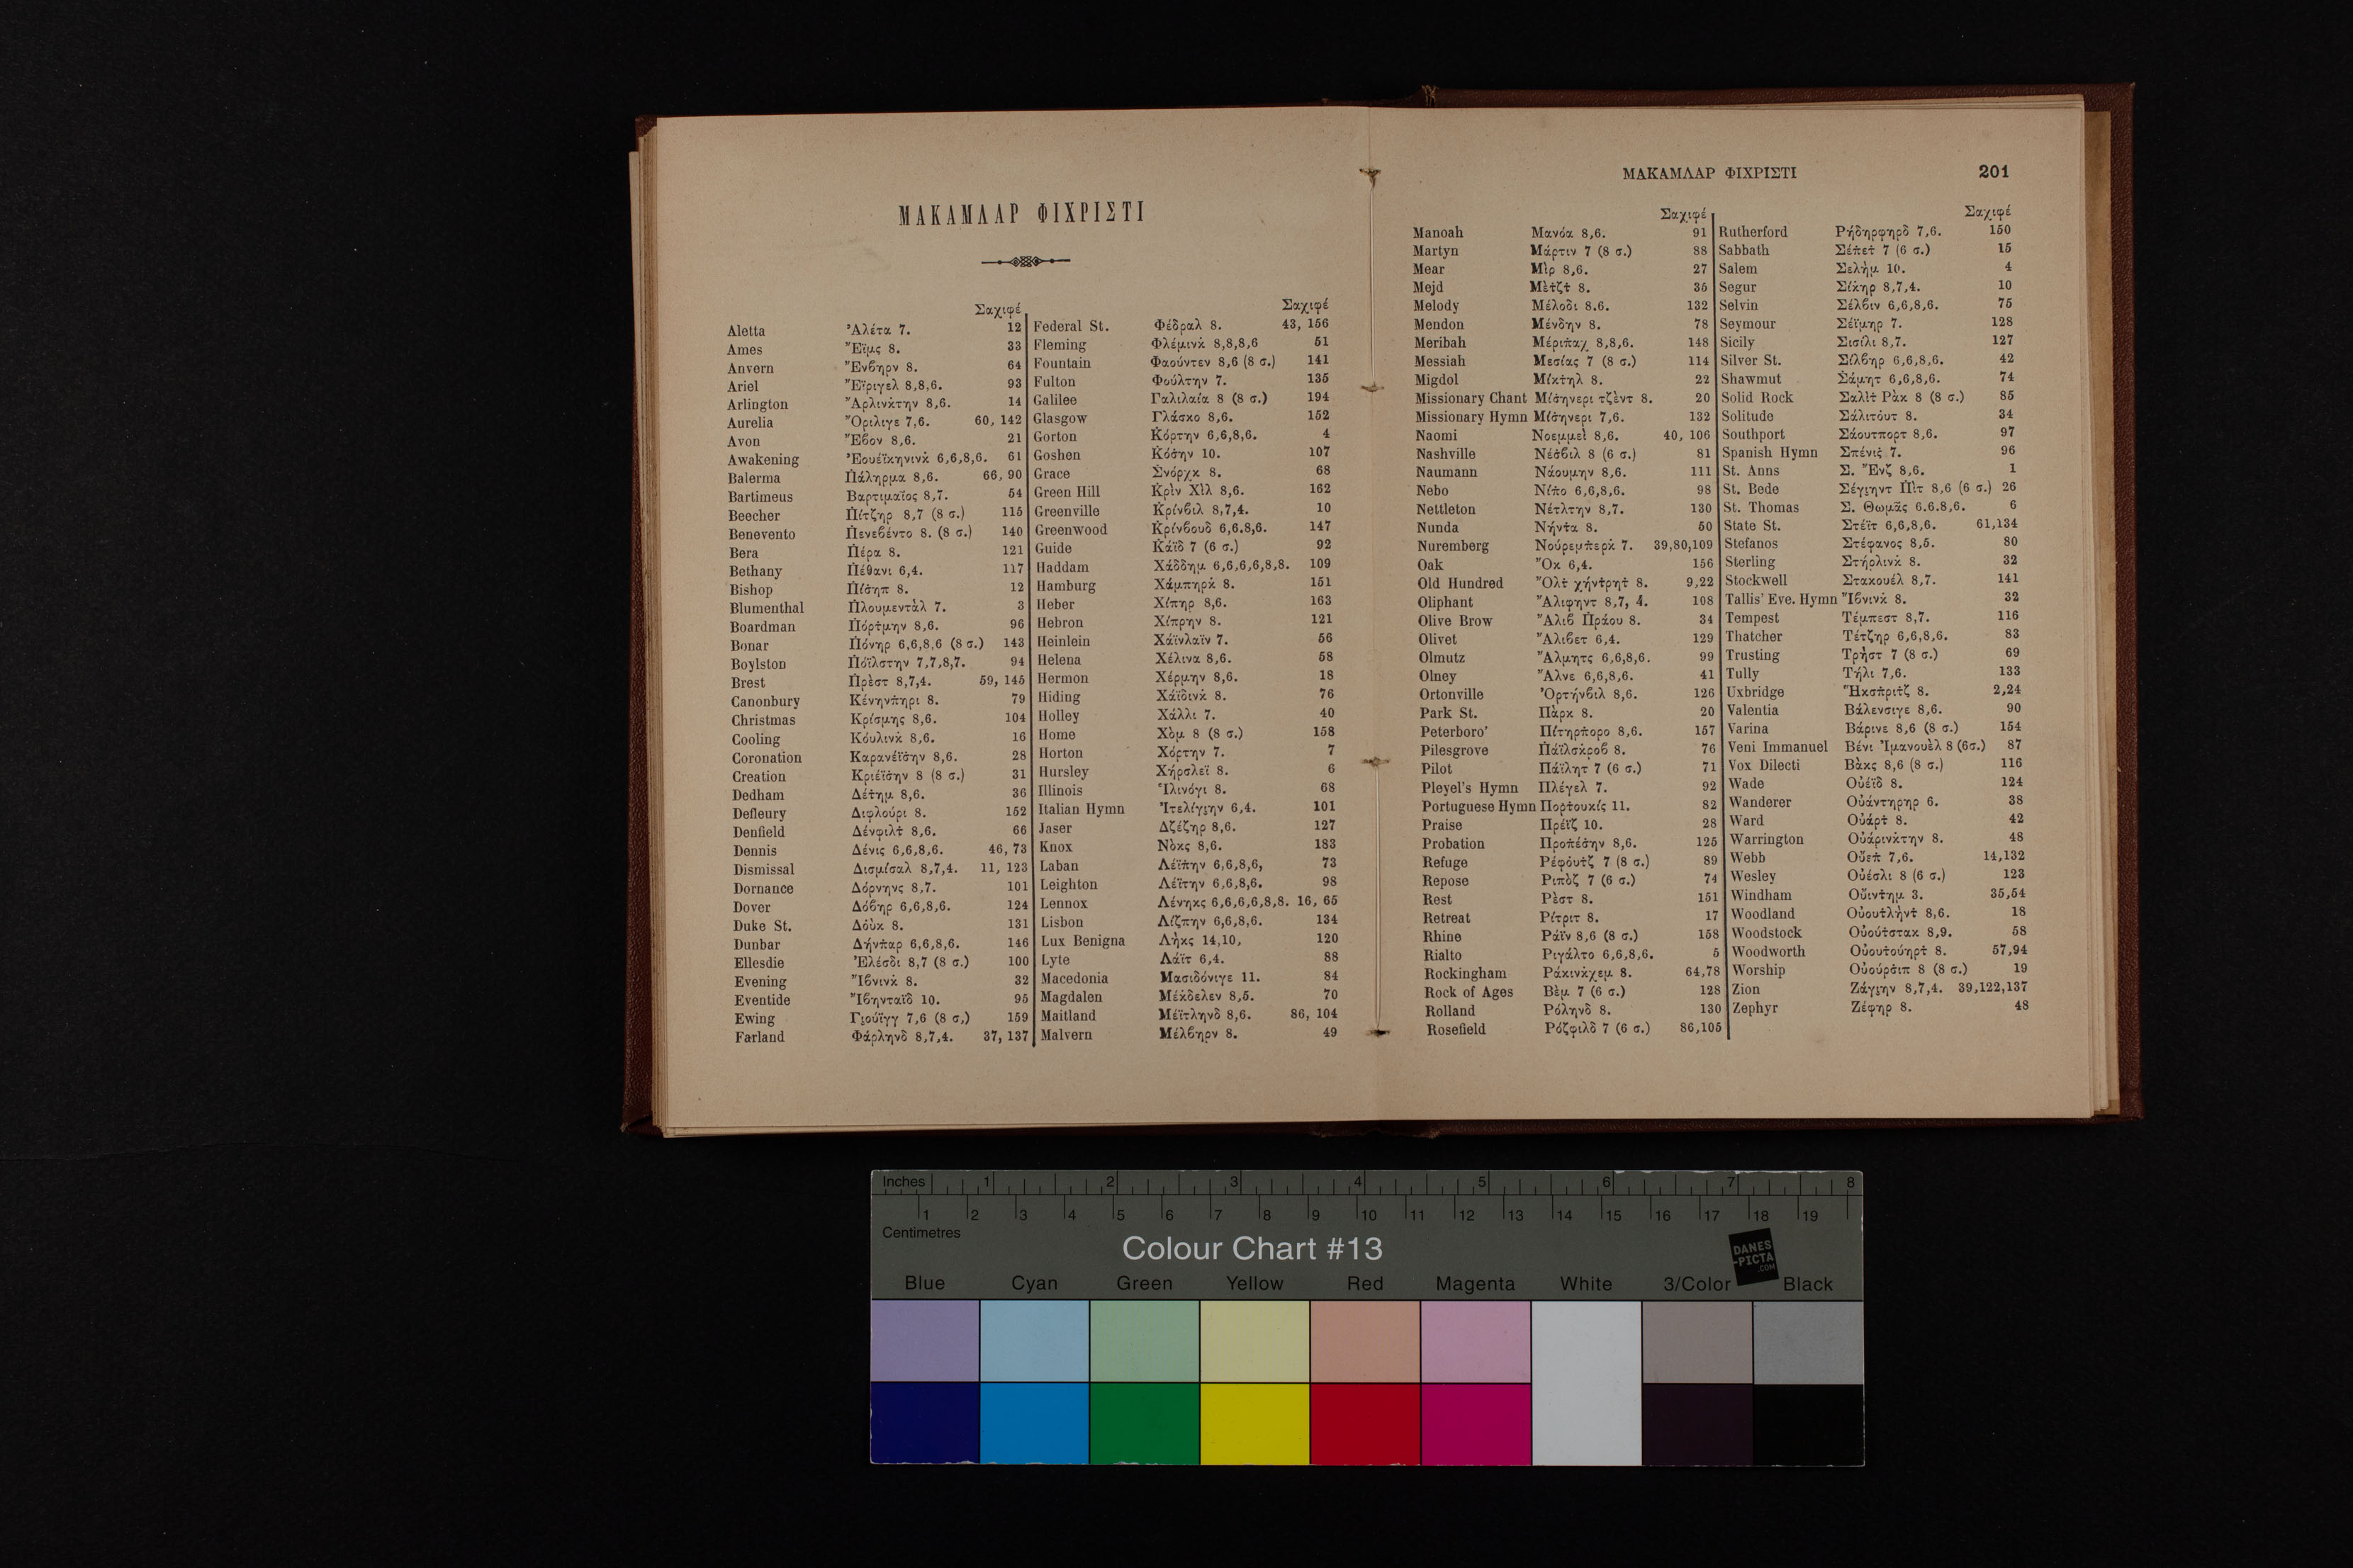 ΜΑΚΑΜΛΑΡ ΦΙΧΡΙΣΤΙ
Σαχιφέ
Aletta Ἀλέτα 7. 12
Ames Ἔϊμς 8. 33
Anvern Ἔνβηρν 8. 64
Ariel Ἔϊριγελ 8,8,6. 93
Arlington Ἄρλινκ̇την 8,6. 14
Aurelia Ὄριλιγε 7,6. 60, 142
Avon Ἔβον 8,6. 21
Awakening Ἐουέϊκηνινκ̇ 6,6,8,6. 61
Balerma Π̇άληρμα 8,6. 66, 90
Bartimeus Βαρτιμαῖος 8,7. 54
Beecher Π̇ίτζηρ 8,7 (8 σ.) 115
Benevento Π̇ενεβέντο 8. (8 σ.) 140
Bera Π̇έρα 8. 121
Bethany Π̇έθανι 6,4. 117
Bishop Π̇ίσ̇ηπ 8. 12
Blumenthal Π̇λουμεντὰλ 7. 3
Boardman Π̇όρτ̇μην 8,6. 96
Bonar Π̇όνηρ 6,6,8,6 (8 σ.) 143
Boylston Π̇όϊλστην 7,7,8,7. 94
Brest Π̇ρὲστ 8,7,4. 59, 145
Canonbury Κένηνπ̇ηρι 8. 79
Christmas Κρίσμης 8,6. 104
Cooling Κόυλινκ̇ 8,6. 16
Coronation Καρανέϊσ̇ην 8,6. 28
Creation Κριέϊσ̇ην 8 (8 σ.) 31
Dedham Δέτ̇ημ 8,6. 36
Defleury Διφλούρι 8. 152
Denfield Δένφιλτ̇ 8,6. 66
Dennis Δένις 6,6,8,6. 46, 73
Dismissal Δισμίσαλ 8,7,4. 11, 123
Dornance Δόρνηνς 8,7. 101
Dover Δόβηρ 6,6,8,6. 124
Duke St. Δοὺκ 8. 131
Dunbar Δήνπ̇αρ 6,6,8,6. 146
Ellesdie Ἐλέσδι 8,7 (8 σ.) 100
Evening Ἴβνινκ̇ 8. 32
Eventide Ἴβηνταϊδ 10. 95
Ewing Γιούϊγγ 7,6 (8 σ,) 159
Farland Φάρληνδ 8,7,4. 37, 137
Σαχιφέ
Federal St. Φέδραλ 8. 43, 156
Fleming Φλέμινκ̇ 8,8,8,6 51
Fountain Φαούντεν 8,6 (8 σ.) 141
Fulton Φούλτην 7. 135
Galilee Γαλιλαία 8 (8 σ.) 194
Glasgow Γλάσκο 8,6. 152
Gorton Κ̇όρτην 6,6,8,6. 4
Goshen Κ̇όσ̇ην 10. 107
Grace Σνόρχκ 8. 68
Green Hill Κ̇ρὶν Χὶλ 8,6. 162
Greenville Κ̇ρίνβιλ 8,7,4. 10
Greenwood Κ̇ρίνβουδ 6,6.8,6. 147
Guide Κ̇άϊδ 7 (6 σ.) 92
Haddam Χάδδημ 6,6,6,6,8,8. 109
Hamburg Χάμπηρκ̇ 8. 151
Heber Χίπηρ 8,6. 163
Hebron Χίπρην 8. 121
Heinlein Χάϊνλαϊν 7. 56
Helena Χέλινα 8,6. 58
Hermon Χέρμην 8,6. 18
Hiding Χάϊδινκ̇ 8. 76
Holley Χάλλι 7. 40
Home Χὸμ 8 (8 σ.) 158
Horton Χόρτην 7. 7
Hursley Χήρσλεϊ 8. 6
Illinois Ἰλινόγι 8. 68
Italian Hymn Ἰτελίγιην 6,4. 101
Jaser Δζέζηρ 8,6. 127
Knox Νὸκς 8,6. 183
Laban Λέϊπ̇ην 6,6,8,6, 73
Leighton Λέϊτην 6,6,8,6. 98
Lennox Λένηκς 6,6,6,6,8,8. 16, 65
Lisbon Λίζπην 6,6,8,6. 134
Lux Benigna Λὴκς 14,10, 120
Lyte Λάϊτ 6,4. 88
Macedonia Μασιδόνιγε 11. 84
Magdalen Μέκ̇δελεν 8,5. 70
Maitland Μέϊτληνδ 8,6. 86, 104
Malvern Μέλβηρν 8. 49
ΜΑΚΑΜΛΑΡ ΦΙΧΡΙΣΤΙ 201
Σαχιφέ
Manoah Μανόα 8,6. 91
Martyn Μάρτιν 7 (8 σ.) 88
Mear Μὶρ 8,6. 27
Mejd Μὲτ̇ζτ̇ 8. 35
Melody Μέλοδι 8.6. 132
Mendon Μένδην 8. 78
Meribah Μέριπ̇αχ 8,8,6. 148
Messiah Μεσίας 7 (8 σ.) 114
Migdol Μίκτ̇ηλ 8. 22
Missionary Chant Μίσ̇ηνερι τζὲντ 8. 20
Missionary Hymn Μίσ̇ηνερι 7,6. 132
Naomi Νοεμμεὶ 8,6. 40, 106
Nashville Νέσ̇βιλ 8 (6 σ.) 81
Naumann Νάουμην 8,6. 111
Nebo Νίπ̇ο 6,6,8,6. 98
Nettleton Νέτλτην 8,7. 130
Nunda Νήντ̇α 8. 50
Nuremberg Νούρεμπ̇ερκ̇ 7. 39,80,109
Oak Ὂκ 6,4. 156
Old Hundred Ὂλτ̇ χήντ̇ρητ̇ 8. 9,22
Oliphant Ἄλιφηντ 8,7, 4. 108
Olive Brow Ἄλιβ Π̇ράου 8. 34
Olivet Ἄλιβετ 6,4. 129
Olmutz Ἄλμητς 6,6,8,6. 99
Olney Ἄλνε 6,6,8,6. 41
Ortonville Ὀρτήνβιλ 8,6. 126
Park St. Πὰρκ 8. 20
Peterboro' Πίτηρπ̇ορο 8,6. 157
Pilesgrove Πάϊλσκ̇ροβ 8. 76
Pilot Πάϊλητ 7 (6 σ.) 71
Pleyel's Hymn Πλέγελ 7. 92
Portuguese Hymn Πορτουκίς 11. 82
Praise Πρέϊζ 10. 28
Probation Προπ̇έσ̇ην 8,6. 125
Refuge Ρέφουτ̇ζ 7 (8 σ.) 89
Repose Ριπὸζ 7 (6 σ.) 74
Rest Ρὲστ 8. 151
Retreat Ρίτριτ 8. 17
Rhine Ράϊν 8,6 (8 σ.) 158
Rialto Ριγάλτο 6,6,8,6. 5
Rockingham Ράκινκ̇χεμ 8. 64,78
Rock of Ages Βὲμ 7 (6 σ.) 128
Rolland Ρόληνδ 8. 130
Rosefield Ρόζφιλδ 7 (6 σ.) 86,105
Σαχιφέ
Rutherford Ρήδηρφηρδ 7,6. 150
Sabbath Σέπ̇ετ̇ 7 (6 σ.) 15
Salem Σελὴμ 10. 4
Segur Σίκ̇ηρ 8,7,4. 10
Selvin Σέλβιν 6,6,8,6. 75
Seymour Σέϊμηρ 7. 128
Sicily Σισίλι 8,7. 127
Silver St. Σίλβηρ 6,6,8,6. 42
Shawmut Σ̇άμητ 6,6,8,6. 74
Solid Rock Σαλὶτ̇ Ρὰκ 8 (8 σ.) 85
Solitude Σάλιτόυτ 8. 34
Southport Σάουτπορτ 8,6. 97
Spanish Hymn Σπένις̇ 7. 96
St. Anns Σ. Ἔνζ 8,6. 1
St. Bede Σέγιηντ Π̇ὶτ 8,6 (6 σ.) 26
St. Thomas Σ. Θωμᾶς 6.6.8,6. 6
State St. Στέϊτ 6,6,8,6. 61,134
Stefanos Στέφανος 8,5. 80
Sterling Στήρλινκ̇ 8. 32
Stockwell Στακουέλ 8,7. 141
Tallis' Eve. Hymn Ἴβνινκ̇ 8. 32
Tempest Τέμπεστ 8,7. 116
Thatcher Τέτζηρ 6,6,8,6. 83
Trusting Τρήστ 7 (8 σ.) 69
Tully Τήλι 7,6. 133
Uxbridge Ἤκσπ̇ριτ̇ζ 8. 2,24
Valentia Βάλενσιγε 8,6. 90
Varina Βάρινε 8,6 (8 σ.) 154
Veni Immanuel Βένι Ἰμανουὲλ 8 (6σ.) 87
Vox Dilecti Βὰκς 8,6 (8 σ.) 116
Wade Οὐέϊδ 8. 124
Wanderer Οὐάντηρηρ 6. 38
Ward Οὐάρτ̇ 8. 42
Warrington Οὐάρινκ̇την 8. 48
Webb Οὔεπ̇ 7,6. 14,132
Wesley Οὐέσλι 8 (6 σ.) 123
Windham Οὔιντ̇ημ 3. 35,54
Woodland Οὐουτ̇λὴντ̇ 8,6. 18
Woodstock Οὐούτ̇στακ 8,9. 58
Woodworth Οὐουτ̇ούηρτ̇ 8. 57,94
Worship Οὐούρσ̇ιπ 8 (8 σ.) 19
Zion Ζάγιην 8,7,4. 39,122,137
Zephyr Ζέφηρ 8. 48
Inches 1 2 3 4 5 6 7 8
1 2 3 4 5 6 7 8 9 10 11 12 13 14 15 16 17 18 19
Centimetres
Colour Chart #13
DANES
-PICTA
.COM
Blue Cyan Green Yellow Red Magenta White 3/Color Black